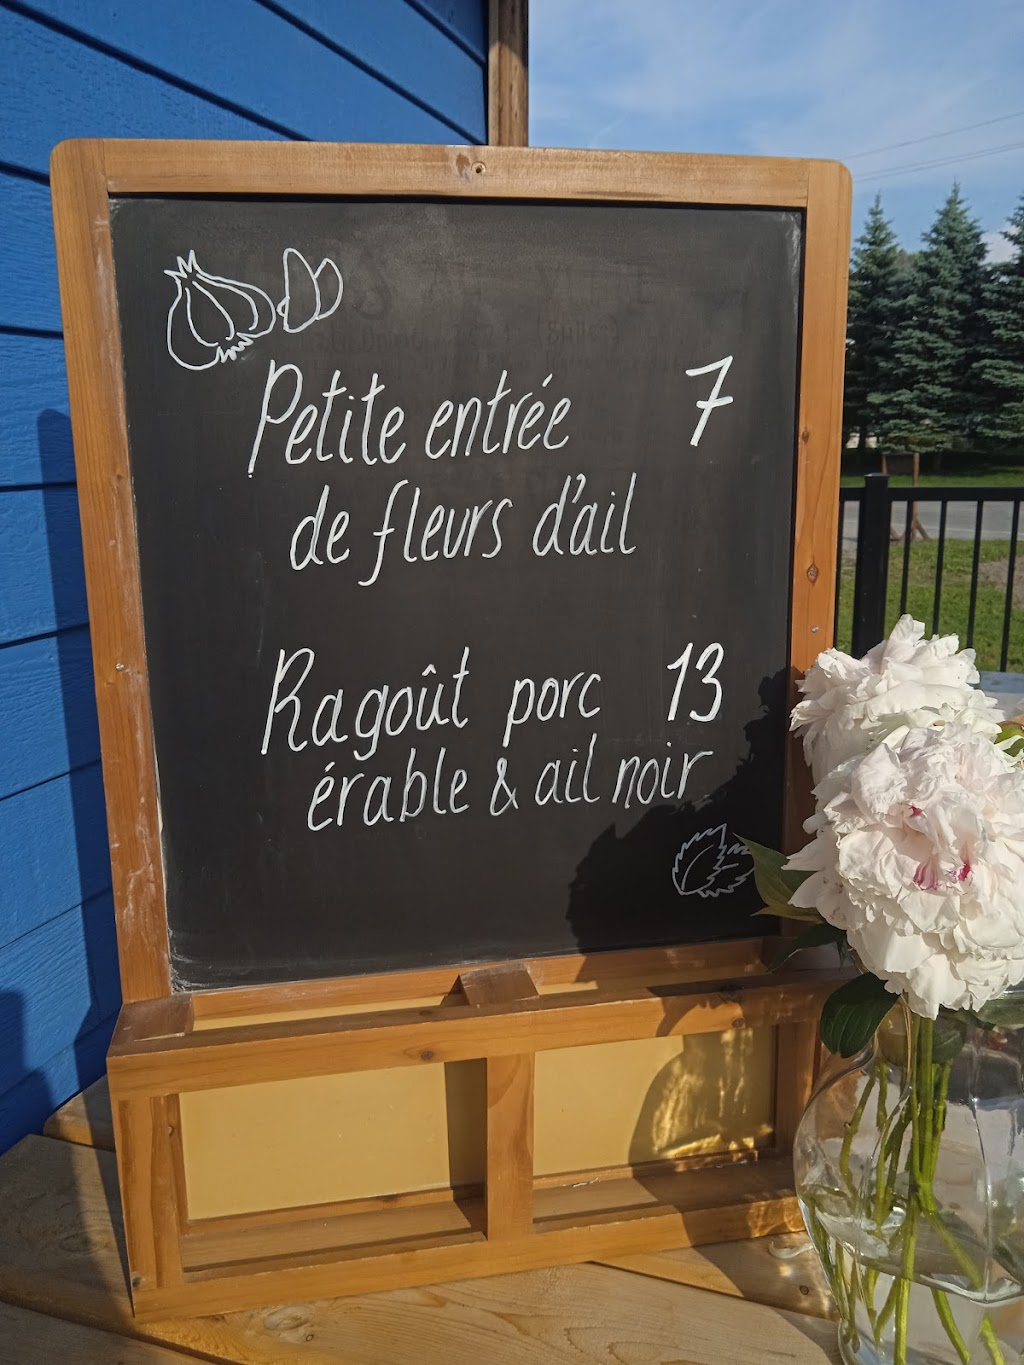 Petite entrée 7
de fleurs d'ail
Ragoût porc 13
érable & ail noir